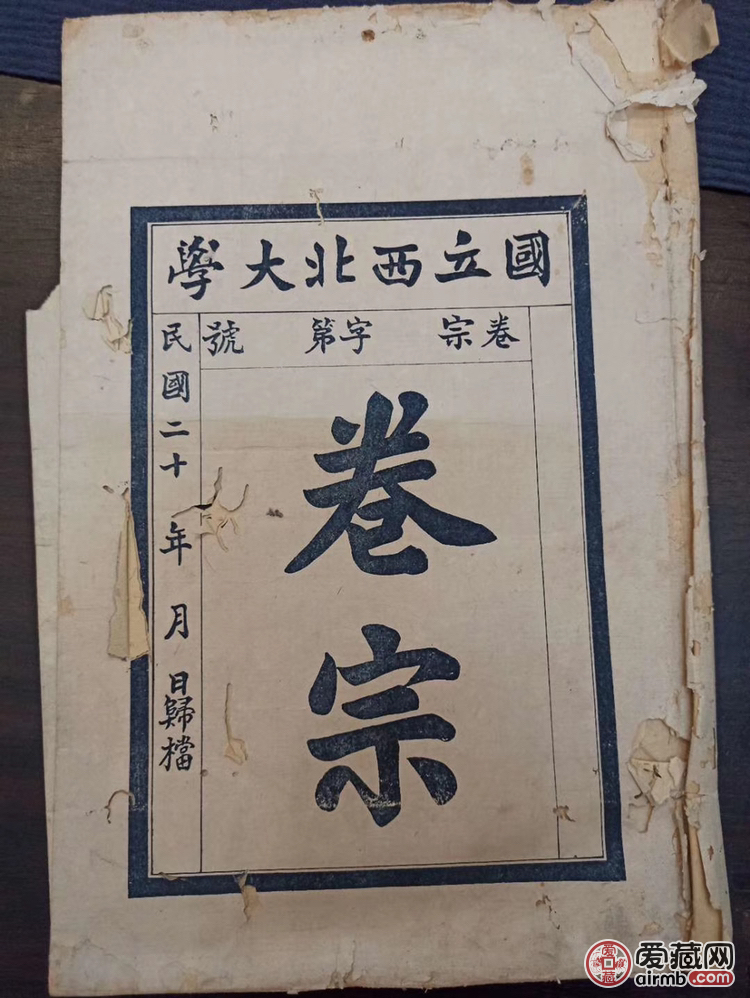 國立西北大學
卷宗 字第 號
卷宗
民國二十 年 月 日歸檔
爱藏网
airmb.com